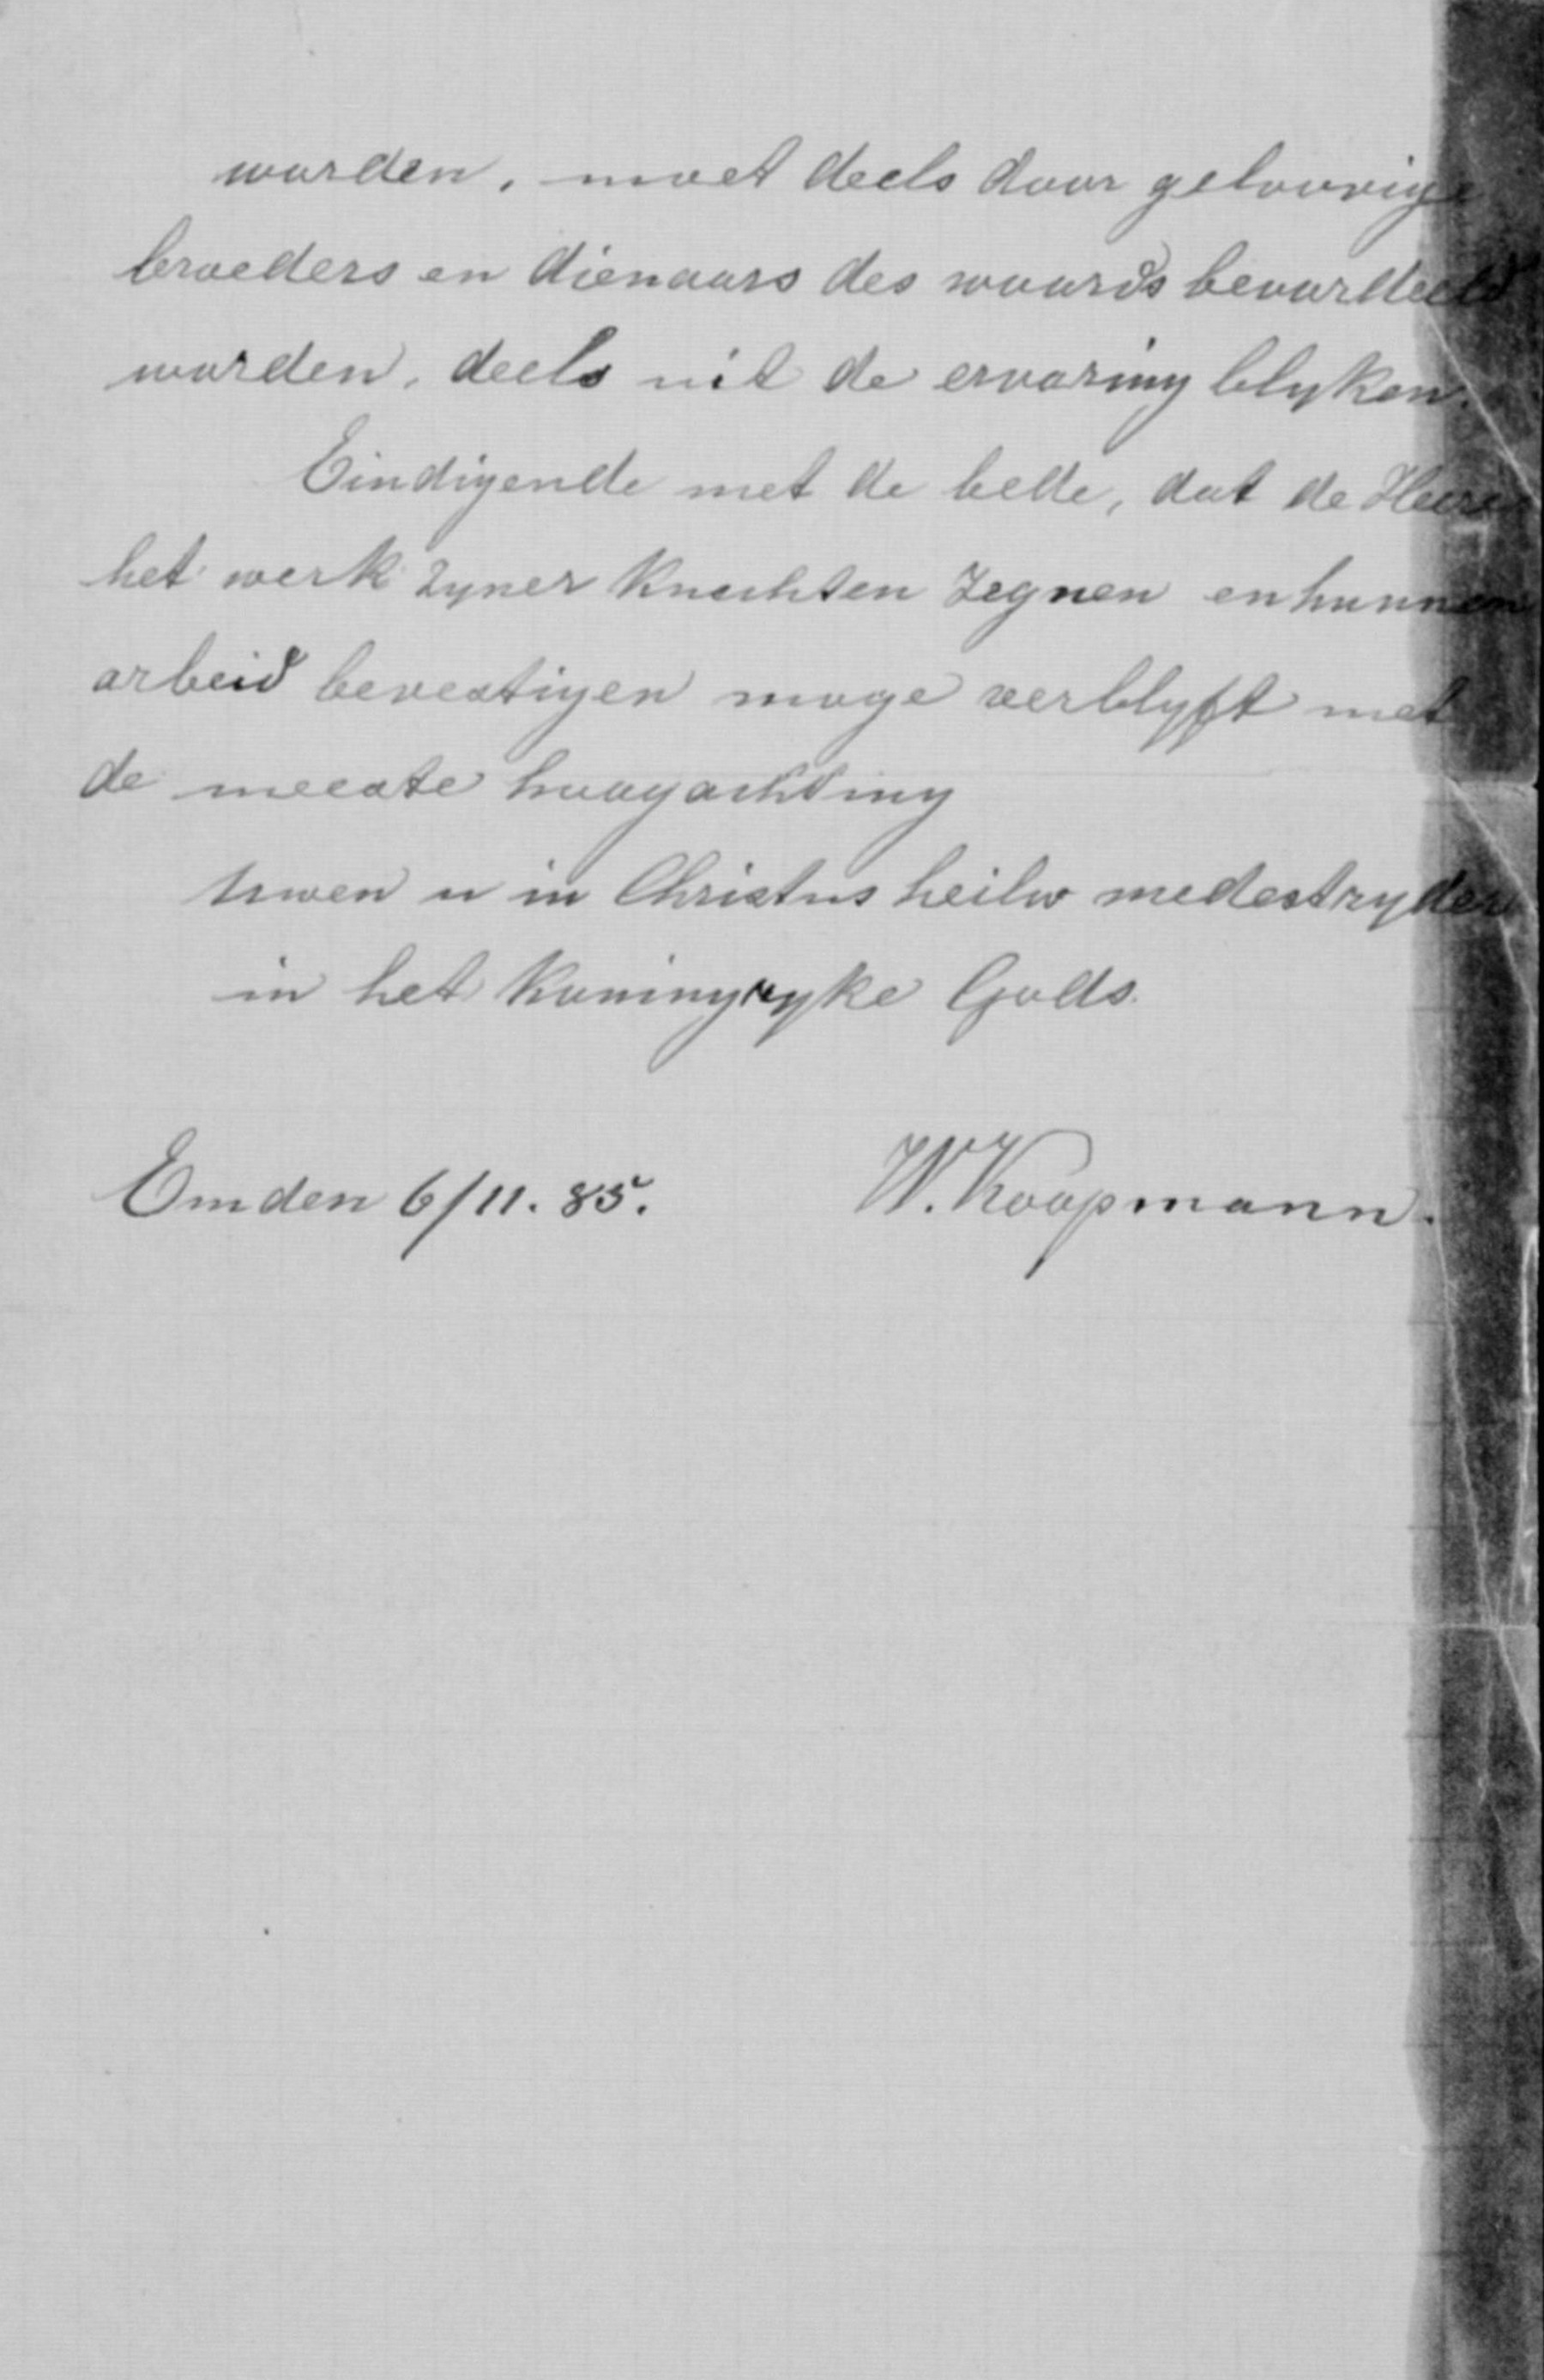 worden, moet deels door geloovige
broeders en dienaars des woords beoordeeld
worden, deels uit de ervaring blyken.
Eindigende met de bede, dat de Heere
het werk zyner Knechten zegnen en hunnen
arbeid bevestigen moge verblyft met
de meeste hoogachting
Uwen u in Christus heilw medestryder
in het Koningryke Gods.
Emden 6/11.85. W. Koopmann.